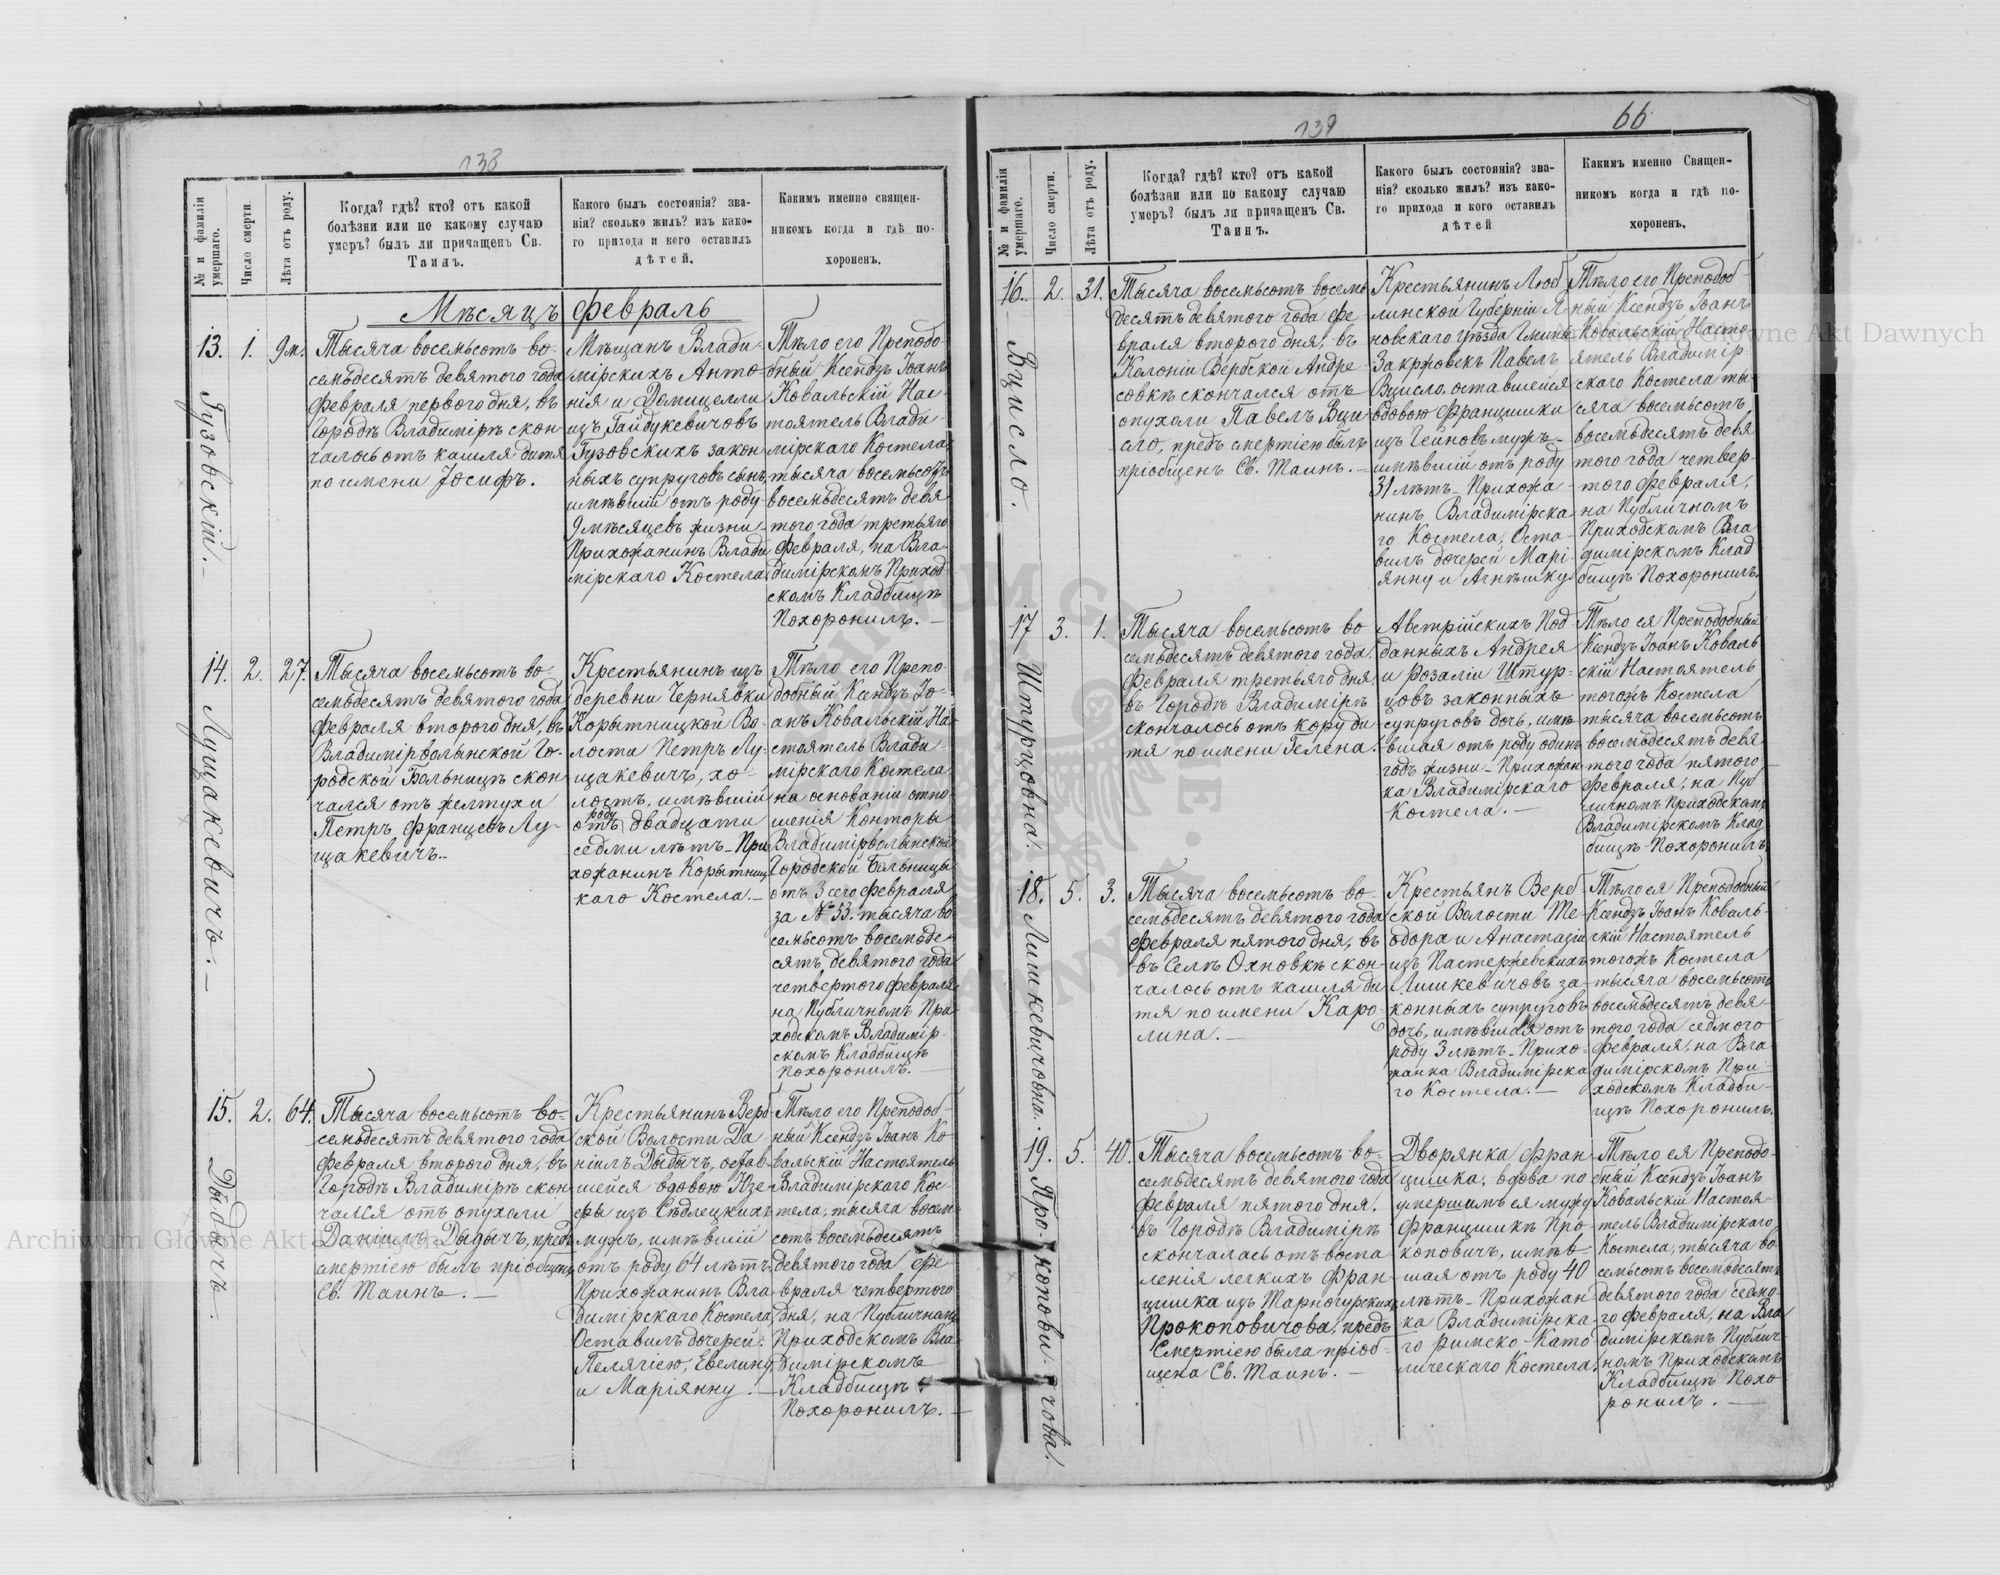 138
№ и фамилія умершаго.
Число смерти.
Лѣта отъ роду.
Когда? гдѣ? кто? отъ какой
болѣзни или по какому случаю
умеръ? былъ ли причащенъ Св.
Таинъ.
Какого былъ состоянія? зва-
нія? сколько жилъ? изъ како-
го прихода и кого оставилъ
дѣтей.
Какимъ именно священ-
никомъ когда и гдѣ по-
хороненъ.
Мѣсяцъ февраль
13. 1. 9 м.
Гузовскій.
Тысяча восемьсотъ во-
семьдесятъ девятого года
февраля первого дня, въ
Городѣ Владимірѣ скон-
чалось отъ кашля дитя
по имени Іосифъ.
Мѣщанъ Влади-
мірскихъ Анто-
нія и Домицелли
изъ Гайдукевичовъ
Гузовскихъ закон-
ныхъ супруговъ сынъ,
имѣвшій отъ роду
9 мѣсяцевъ жизни -
Прихожанинъ Влади
мірскаго Костела.
Тѣло его Преподо-
бный Ксендзъ Іоанъ
Ковальскій Нас-
тоятель Влади
мірскаго Костела,
тысяча восемьсотъ
восемьдесятъ девя
того года третьяго
февраля, на Вла-
димірскомъ Приход
скомъ Кладбищѣ
Похоронилъ. —
14. 2. 27.
Луцакевичъ. —
Тысяча восемьсотъ во-
семьдесятъ девятого года
февраля второго дня, въ
Владимірволынской Го-
родской Больницѣ скон
чался отъ желтухи
Петръ Францевъ Лу-
цакевичъ. —
Крестьянинъ изъ
деревни Чернявки
Корытницкой Во-
лости Петръ Лу-
цакевичъ, хо-
лостъ, имѣвшій
отъ роду двадцати
седми лѣтъ - При
хожанинъ Корытниц
каго Костела. —
Тѣло его Препо-
добный Ксендзъ Іо-
анъ Ковальскій На-
стоятель Влади
мірскаго Костела
на основаніи отно-
шенія Конторы
Владимірволынской
Городской Больницы
отъ 3 сего февраля
за № 53. тысяча во-
семьсотъ восемьде-
сятъ девятого года
четвертого февраля
на Публичномъ При
ходскомъ Владимір-
скомъ Кладбищѣ
похоронилъ. —
15. 2. 64.
Дыдычъ.
Тысяча восемьсотъ во-
семьдесятъ девятого года
февраля второго дня, въ
Городѣ Владимірѣ скон-
чался отъ опухоли
Даніилъ Дыдычъ, предъ
смертію былъ пріобщенъ
Св. Таинъ. —
Крестьянинъ Верб
ской Волости Да-
ніилъ Дыдычъ, остав-
шейся вдовою Юзе-
фы изъ Сѣдлецкихъ
мужъ, имѣвшій
отъ роду 64 лѣтъ.
Прихожанинъ Вла-
димірскаго Костела
Оставилъ дочерей:
Пелягію, Евелину
и Маріянну. —
Тѣло его Преподоб-
ный Ксендзъ Іоанъ Ко-
вальскій Настоятель
Владимірскаго Кос-
тела, тысяча восем-
сотъ восемьдесятъ
девятого года фе
враля четвертого
дня, на Публичномъ
Приходскомъ Вла-
димірскомъ
Кладбищѣ
Похоронилъ. —
139
66
№ и фамилія умершаго.
Число смерти.
Лѣта отъ роду.
Когда? гдѣ? кто? отъ какой
болѣзни или по какому случаю
умеръ? былъ ли причащенъ Св.
Таинъ.
Какого былъ состоянія? зва-
нія? сколько жилъ? изъ како-
го прихода и кого оставилъ
дѣтей
Какимъ именно Священ-
никомъ когда и гдѣ по-
хороненъ.
16. 2. 31.
Вцисло.
Тысяча восемьсотъ восемь
десятъ девятого года фе
враля второго дня, въ
Колоніи Вербской Андре
совкѣ скончался отъ
опухоли Павелъ Вци
сло, предъ смертію былъ
пріобщенъ Св. Таинъ. —
Крестьянинъ Люб
линской Губерніи Я
новскаго Уѣзда Гмины
Закржовекъ Павелъ
Вцисло, оставшейся
вдовою Францишки
изъ Гейновъ мужъ -
имѣвшій отъ роду
31 лѣтъ - Прихожа-
нинъ Владимірска
го Костела, Оста-
вилъ дочерей Марі-
янну и Агнѣшку
Тѣло его Преподоб
ный Ксендзъ Іоанъ
Ковальскій Насто-
ятель Владимір-
скаго Костела ты-
сяча восемьсотъ
восемьдесятъ девя
того года четвер-
того февраля,
на Публичномъ
Приходскомъ Вла
димірскомъ Клад
бищѣ Похоронилъ.
17 3. 1.
Штурцовна.
Тысяча восемьсотъ во
семьдесятъ девятого года
февраля третьяго дня
въ Городѣ Владимірѣ
скончалось отъ кору ди
тя по имени Гелена.
Австрійскихъ Под
данныхъ Андрея
и Розаліи Штур-
цовъ законныхъ
супруговъ дочь, имѣ
вшая отъ роду одинъ
годъ жизни - Прихожан
ка Владимірскаго
Костела. —
Тѣло ея Преподобный
Ксендзъ Іоанъ Коваль
скій Настоятель
тогожъ Костела
тысяча восемьсотъ
восемьдесятъ девя-
того года пятого
февраля, на Пуб
личномъ Приходскомъ
Владимірскомъ Клад
бищѣ Похоронилъ
18. 5. 3.
Лишкевичовна.
Тысяча восемьсотъ во-
семьдесятъ девятого года
февраля пятого дня, въ
въ Селѣ Охновкѣ скон-
чалось отъ кашля ди
тя по имени Каро-
лина. —
Крестьянъ Верб
ской Волости Те-
одора и Анастазіи
изъ Пастержевскихъ
Лишкевичовъ за-
конныхъ супруговъ
дочь, имѣвшая отъ
роду 3 лѣтъ - Прихо-
жанка Владимірска
го Костела. —
Тѣло ея Преподобный
Ксендзъ Іоанъ Коваль-
скій Настоятель
тогожъ Костела
тысяча восемьсотъ
восемьдесятъ девя-
того года седмого
февраля, на Вла-
димірскомъ При-
ходскомъ Кладби-
щѣ Похоронилъ.
19. 5. 40.
Про-коповичова.
Тысяча восемьсотъ во-
семьдесятъ девятого года
февраля пятого дня,
въ Городѣ Владимірѣ
скончалась отъ воспа
ленія легкихъ Фран-
цишка изъ Тарногурскихъ
Прокоповичова, предъ
Смертію была пріоб-
щена Св. Таинъ. —
Дворянка Фран
цишка, вдова по
умершимъ ея мужу
Францишкѣ Про
коповичъ, имѣв-
шая отъ роду 40
лѣтъ - Прихожан
ка Владимірска-
го римско-като-
лическаго Костела,
Тѣло ея Преподо-
бный Ксендзъ Іоанъ
Ковальскій Настоя-
тель Владимірскаго
Костела, тысяча во-
семьсотъ восемьдесятъ
девятого года седмо-
го февраля, на Вла
димірскомъ Публич-
номъ Приходскомъ
Кладбищѣ Похо-
ронилъ. —
Archiwum Główne Akt Dawnych